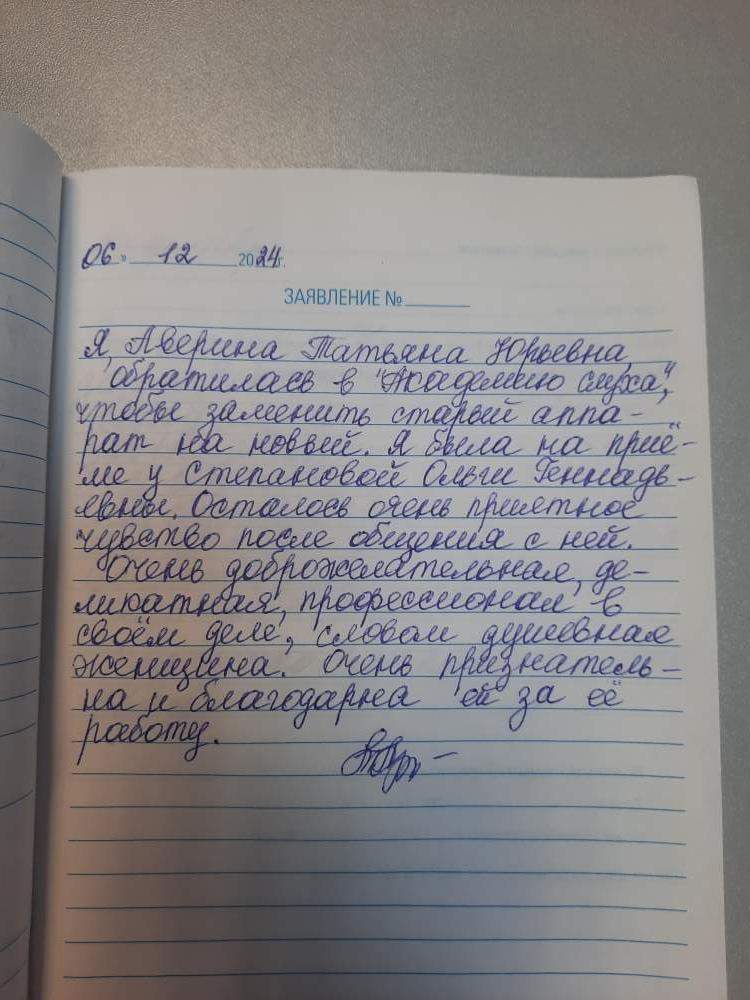 06 » 12 2024г.
ЗАЯВЛЕНИЕ №
Я, Аверина Татьяна Юрьевна,
обратилась в "Академию слуха",
чтобы заменить старый аппа-
рат на новый. Я была на приё-
ме у Степановой Ольги Геннадь-
евны. Осталось очень приятное
чувство после общения с ней.
Очень доброжелательная, де-
ликатная, профессионал в
своём деле, словом душевная
женщина. Очень признатель-
на и благодарна ей за её
работу.